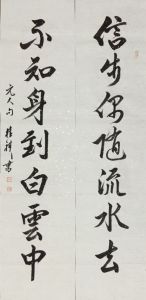 信步偶随流水去
不知身到白雲中
元人句 桂祥书